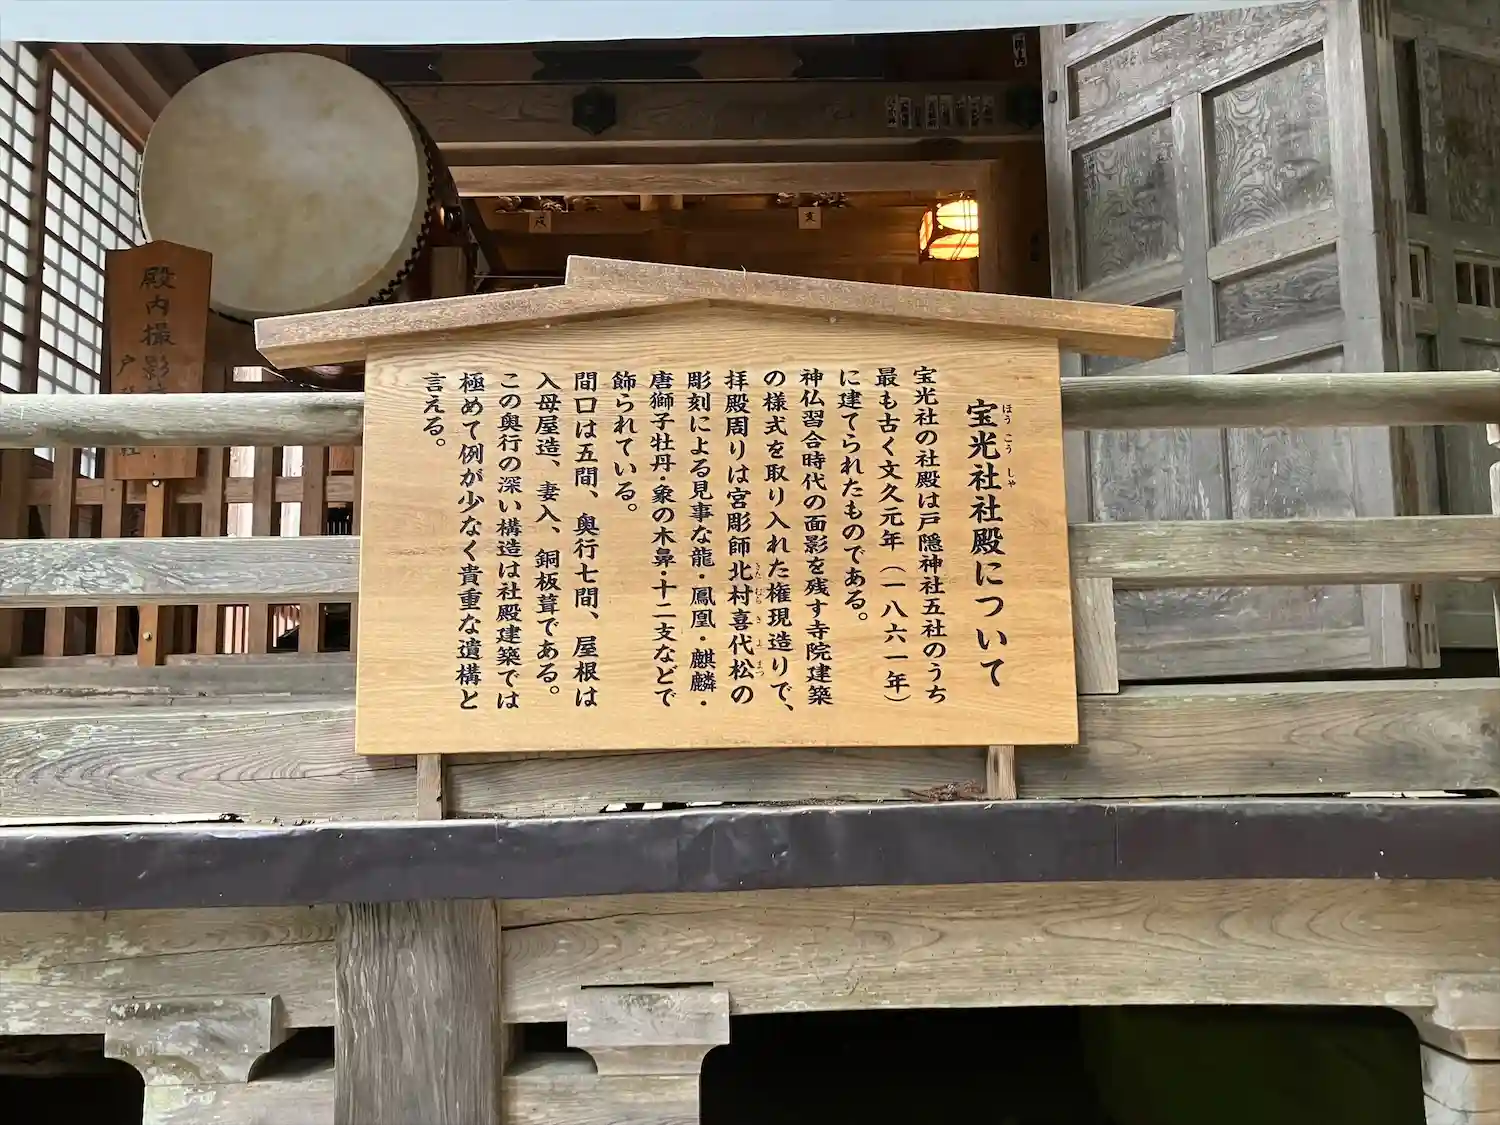 宝光社社殿について
ほうこうしゃ
宝光社の社殿は戸隠神社五社のうち
最も古く文久元年（一八六一年）
に建てられたものである。
神仏習合時代の面影を残す寺院建築
の様式を取り入れた権現造りで、
拝殿周りは宮彫師北村喜代松の
きたむらきよまつ
彫刻による見事な龍・鳳凰・麒麟・
唐獅子牡丹・象の木鼻・十二支などで
飾られている。
間口は五間、奥行七間、屋根は
入母屋造、妻入、銅板葺である。
この奥行の深い構造は社殿建築では
極めて例が少なく貴重な遺構と
言える。
殿内撮影
戸
社
戌
亥